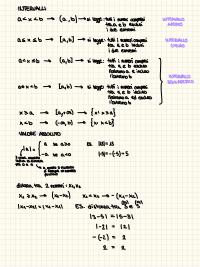 INTERVALLI
a < x < b → (a, b) → si legge: tutti i numeri compresi
tra a e b esclusi
i due estremi
INTERVALLO
APERTO
a ≤ x ≤ b → [a, b] → si legge: tutti i numeri compresi
tra a e b inclusi
i due estremi
INTERVALLO
CHIUSO
a < x ≤ b → (a, b] → si legge: tutti i numeri compresi
tra a e b escluso
l'estremo a e incluso
l'estremo b
a ≤ x < b → [a, b) → si legge: tutti i numeri compresi
tra a e b incluso
l'estremo a e escluso
l'estremo b
INTERVALLO
x > a → (a, +∞) → {x: x > a}
x < b → (-∞, b) → {x: x < b}
VALORE ASSOLUTO
|a| =
a se a ≥ 0
-a se a < 0
ES. |5| = 5
|-5| = -(-5) = 5
distanza tra 2 numeri: x₁, x₂
x₁ ≥ x₂ → (x₁ - x₂)
x₁ < x₂ → -(x₁ - x₂)
|x₁ - x₂| = |x₂ - x₁|
ES. distanza tra 3 e 5
|3 - 5| = |5 - 3|
|-2| = |2|
-(-2) = 2
2 = 2